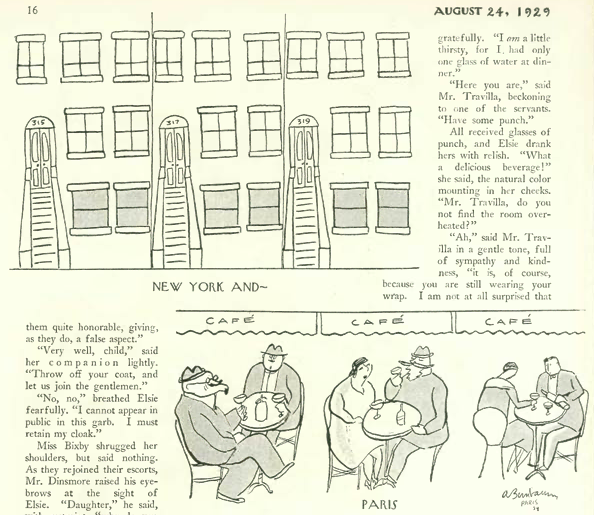 16
AUGUST 24, 1929
315
317
319
NEW YORK AND~
gratefully. "I am a little
thirsty, for I had only
one glass of water at din-
ner."
"Here you are," said
Mr. Travilla, beckoning
to one of the servants.
"Have some punch."
All received glasses of
punch, and Elsie drank
hers with relish. "What
a delicious beverage!"
she said, the natural color
mounting in her cheeks.
"Mr. Travilla, do you
not find the room over-
heated?"
"Ah," said Mr. Trav-
illa in a gentle tone, full
of sympathy and kind-
ness, "it is, of course,
because you are still wearing your
wrap. I am not at all surprised that
them quite honorable, giving,
as they do, a false aspect."
"Very well, child," said
her companion lightly.
"Throw off your coat, and
let us join the gentlemen."
"No, no," breathed Elsie
fearfully. "I cannot appear in
public in this garb. I must
retain my cloak."
Miss Bixby shrugged her
shoulders, but said nothing.
As they rejoined their escorts,
Mr. Dinsmore raised his eye-
brows at the sight of
Elsie. "Daughter," he said,
CAFÉ
CAFÉ
CAFÉ
PARIS
A. Birnbaum
PARIS